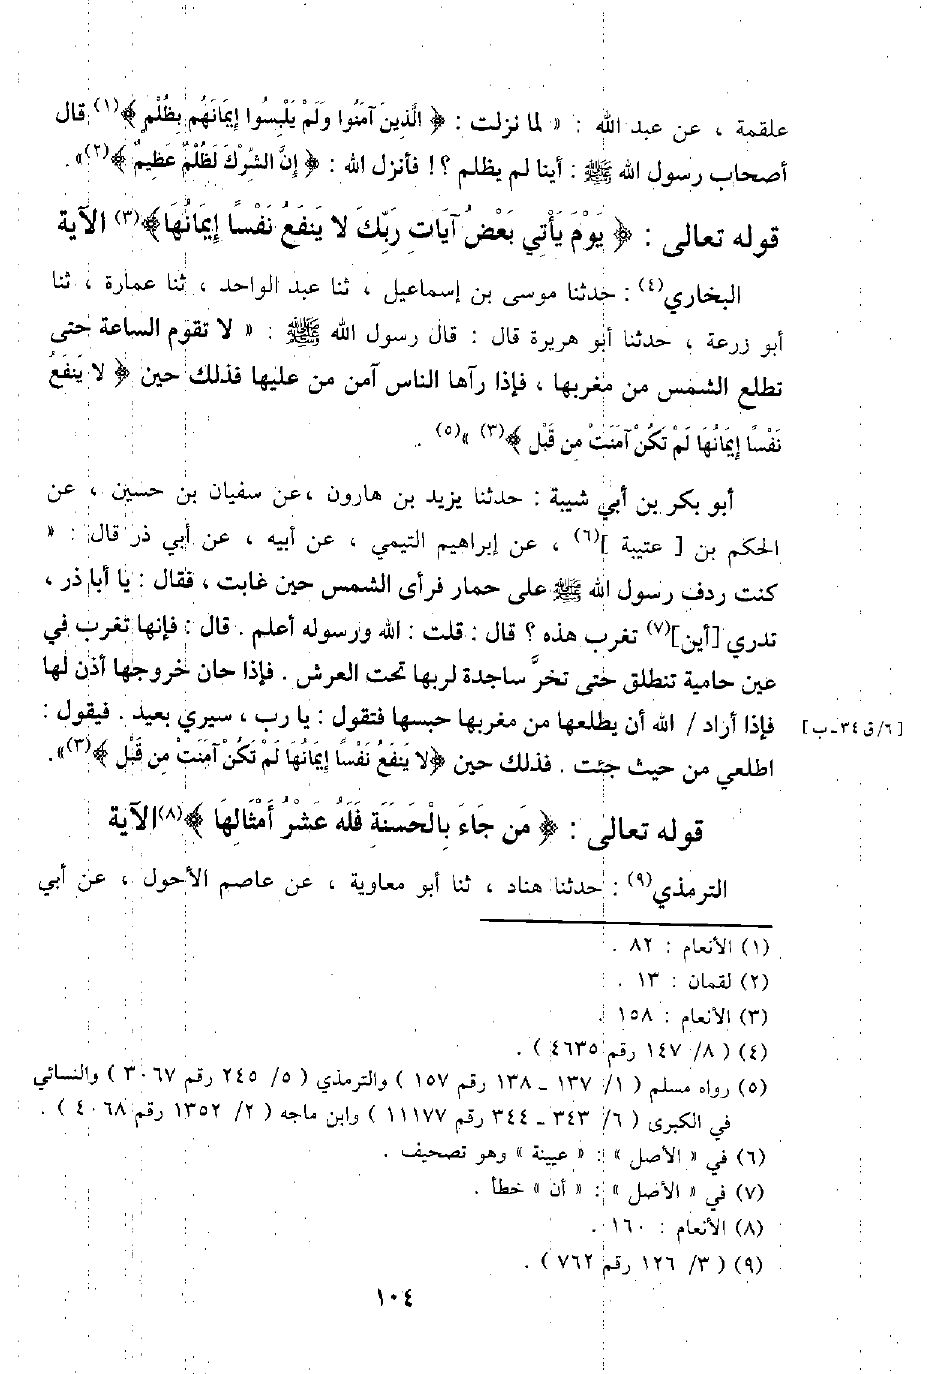 علقمة ، عن عبد الله : « لما نزلت : ﴿ الَّذِينَ آمَنُوا وَلَمْ يَلْبِسُوا إِيمَانَهُم بِظُلْمٍ ﴾(١) قال
أصحاب رسول الله ﷺ : أينا لم يظلم ؟! فأنزل الله : ﴿ إِنَّ الشِّرْكَ لَظُلْمٌ عَظِيمٌ ﴾(٢)» .
قوله تعالى : ﴿ يَوْمَ يَأْتِي بَعْضُ آيَاتِ رَبِّكَ لا يَنفَعُ نَفْسًا إِيمَانُهَا﴾(٣) الآية
البخاري(٤) : حدثنا موسى بن إسماعيل ، ثنا عبد الواحد ، ثنا عمارة ، ثنا
أبو زرعة ، حدثنا أبو هريرة قال : قال رسول الله ﷺ : « لا تقوم الساعة حتى
تطلع الشمس من مغربها ، فإذا رآها الناس آمن من عليها فذلك حين ﴿ لا يَنفَعُ
نَفْسًا إِيمَانُهَا لَمْ تَكُنْ آمَنَتْ مِن قَبْل ﴾(٣) »(٥) .
أبو بكر بن أبي شيبة : حدثنا يزيد بن هارون ،عن سفيان بن حسين ، عن
الحكم بن [ عتيبة ](٦) ، عن إبراهيم التيمي ، عن أبيه ، عن أبي ذر قال : «
كنت ردف رسول الله ﷺ على حمار فرأى الشمس حين غابت ، فقال : يا أبا ذر ،
تدري [أين](٧) تغرب هذه ؟ قال : قلت : الله ورسوله أعلم . قال : فإنها تغرب في
عين حامية تنطلق حتى تخرَّ ساجدة لربها تحت العرش . فإذا حان خروجها أذن لها
فإذا أراد / الله أن يطلعها من مغربها حبسها فتقول : يا رب ، سيري بعيد . فيقول : [٦/ق ٣٤ـ ب]
اطلعي من حيث جئت . فذلك حين ﴿لا يَنفَعُ نَفْسًا إِيمَانُهَا لَمْ تَكُنْ آمَنَتْ مِن قَبْل ﴾(٣)» .
قوله تعالى : ﴿ مَن جَاءَ بِالْحَسَنَةِ فَلَهُ عَشْرُ أَمْثَالِهَا ﴾(٨)الآية
الترمذي(٩) : حدثنا هناد ، ثنا أبو معاوية ، عن عاصم الأحول ، عن أبي
(١) الأنعام : ٨٢ .
(٢) لقمان : ١٣ .
(٣) الأنعام : ١٥٨ .
(٤) ( ٨/ ١٤٧ رقم ٤٦٣٥ ) .
(٥) رواه مسلم ( ١/ ١٣٧ ـ ١٣٨ رقم ١٥٧ ) والترمذي ( ٥/ ٢٤٥ رقم ٣٠٦٧ ) والنسائي
في الكبرى ( ٦/ ٣٤٣ ـ ٣٤٤ رقم ١١١٧٧ ) وابن ماجه ( ٢/ ١٣٥٢ رقم ٤٠٦٨ ) .
(٦) في « الأصل » : « عيينة » وهو تصحيف .
(٧) في « الأصل » : « أن » خطأ .
(٨) الأنعام : ١٦٠ .
(٩) ( ٣/ ١٢٦ رقم ٧٦٢ ) .
١٠٤